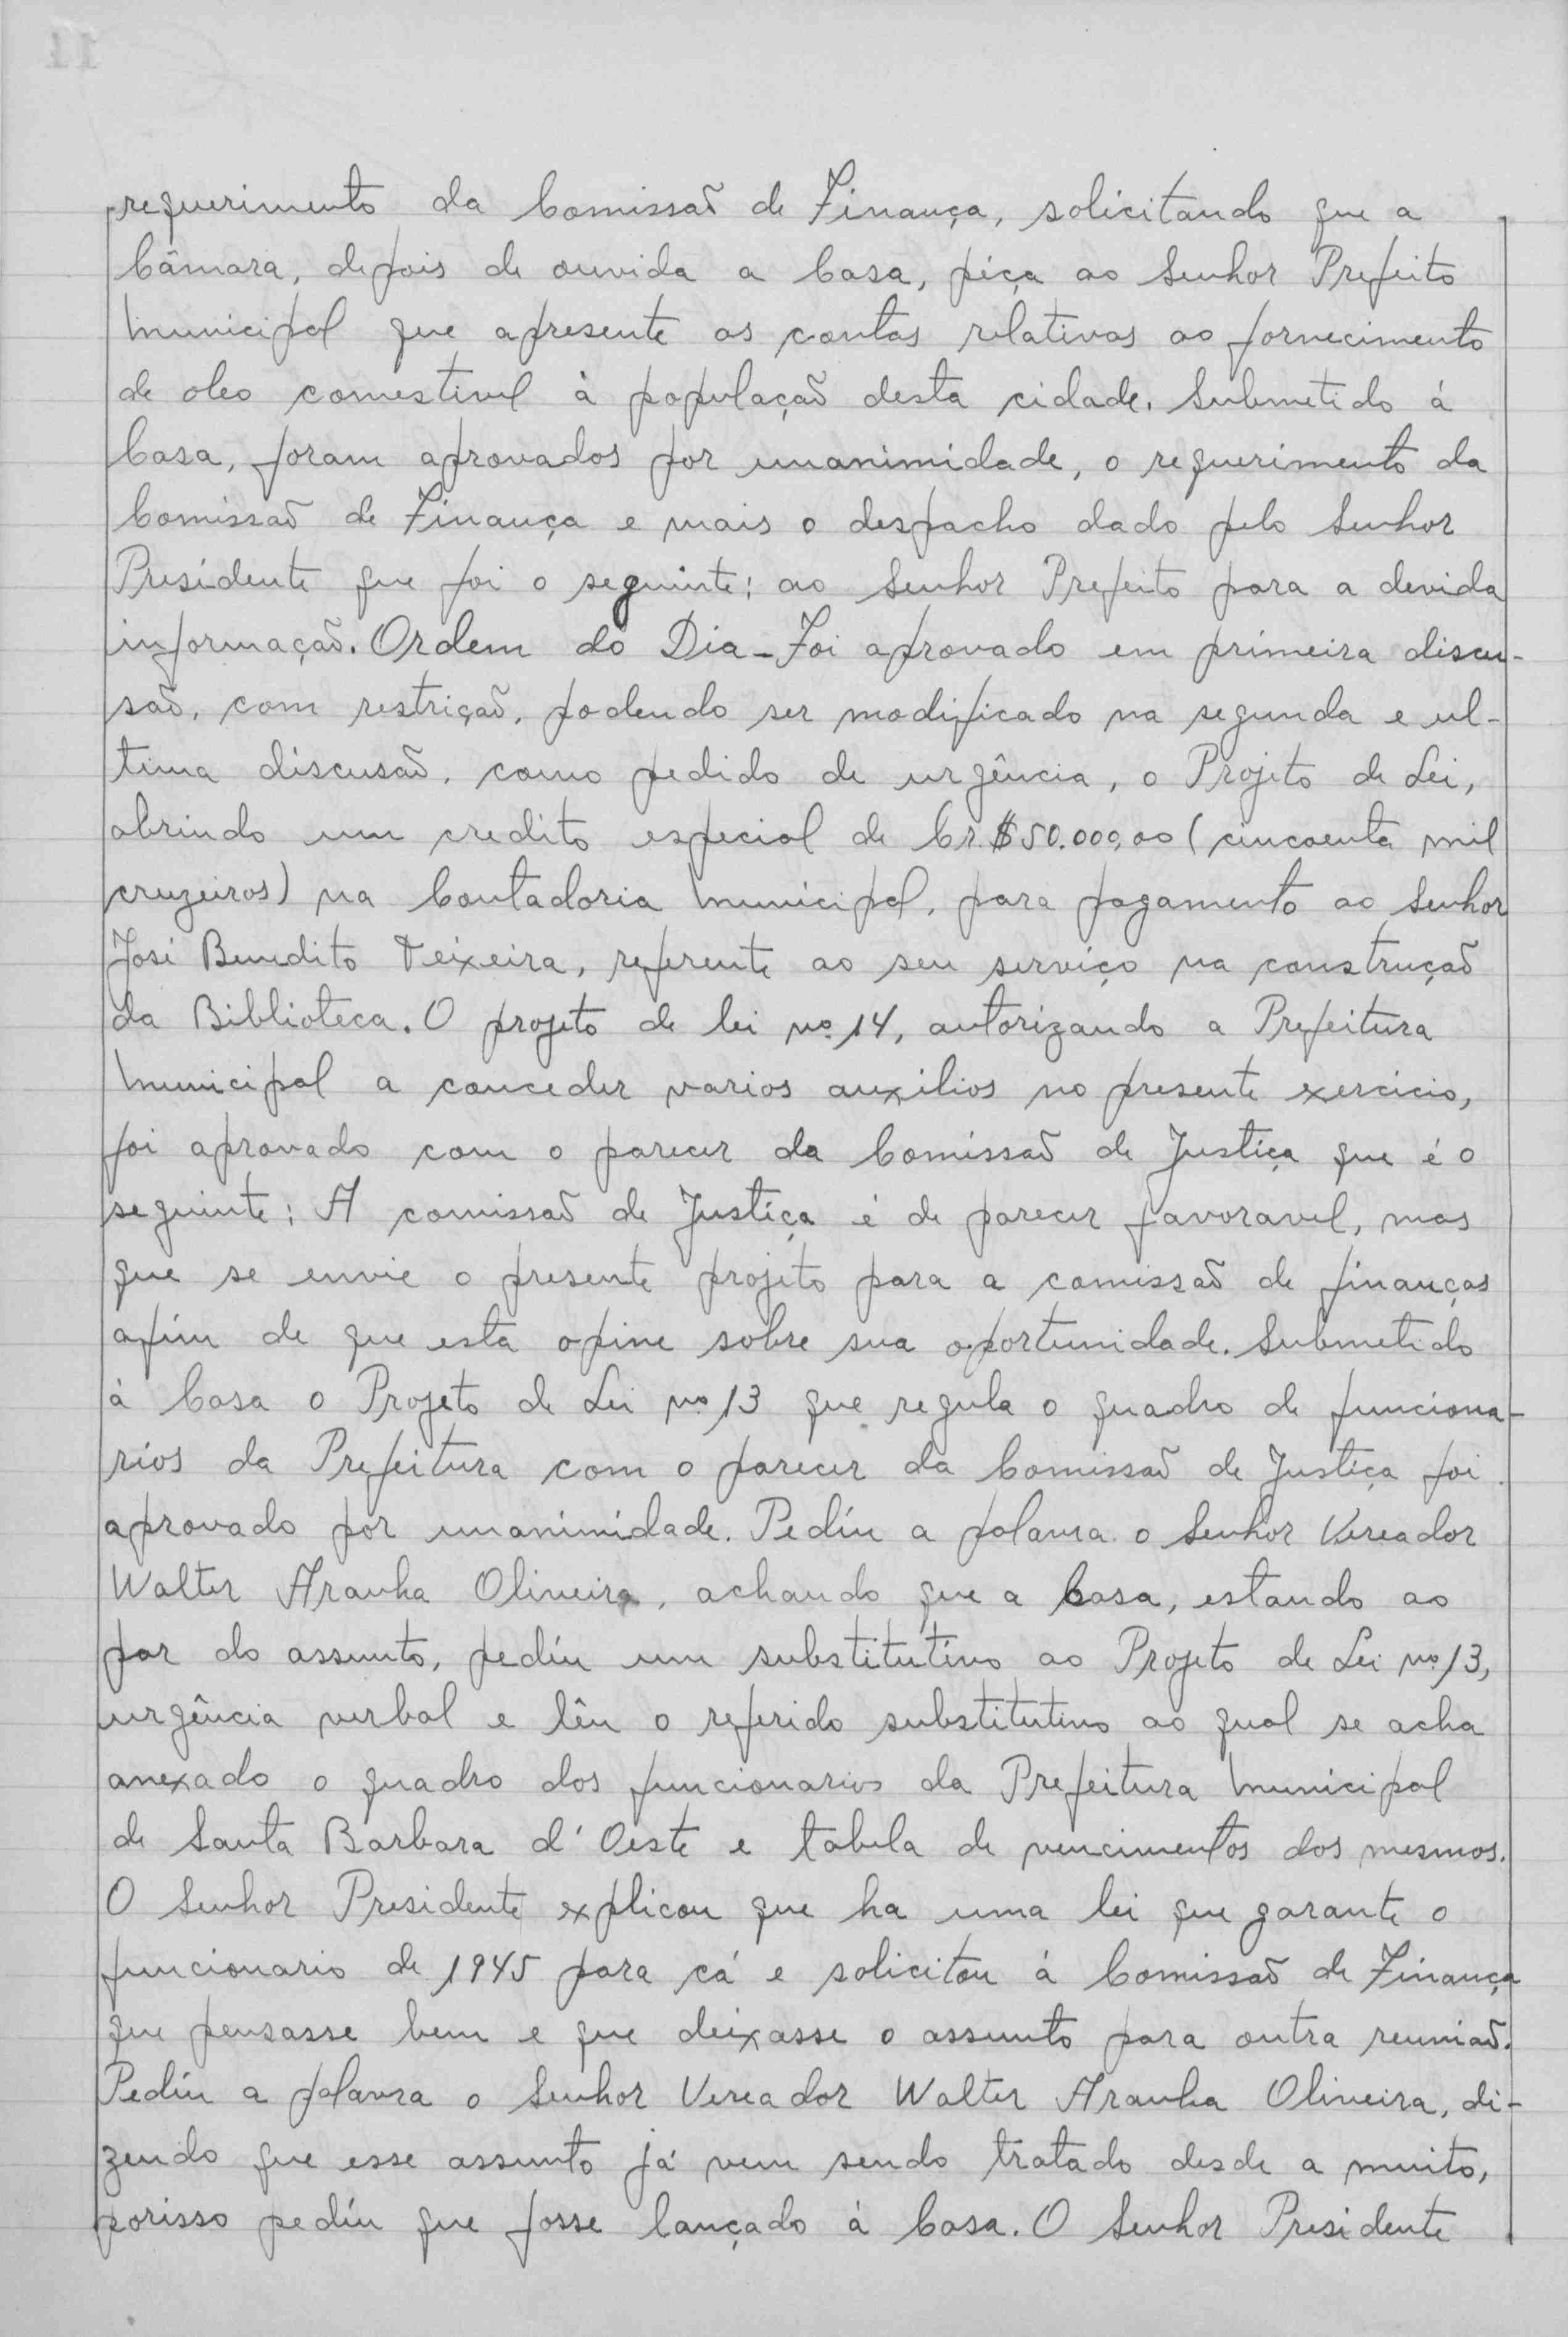 requerimento da Comissaõ de Finança, solicitando que a
Câmara, depois de ouvida a Casa, péça ao Senhor Prefeito
Municipal que apresente as contas relativas ao fornecimento
de oleo comestivel à populaçaõ desta cidade. Submetido á
Casa, foram aprovados por unanimidade, o requerimento da
Comissaõ de Finança e mais o despacho dado pelo Senhor
Presidente que foi o seguinte: ao Senhor Prefeito para a devida
informaçaõ. Ordem do Dia - Foi aprovado em primeira discu-
saõ, com restriçaõ, podendo ser modificado na segunda e ul-
tima discusaõ, como pedido de urgência, o Projeto de Lei,
abrindo um credito especial de Cr.$50.000,00 (cincoenta mil
cruzeiros) na Contadoria Municipal, para pagamento ao Senhor
José Benedito Teixeira, referente ao seu serviço na construçaõ
da Biblioteca. O projeto de lei nº 14, autorizando a Prefeitura
Municipal a conceder varios auxilios no presente exercicio,
foi aprovado com o parecer da Comissaõ de Justiça que é o
seguinte: A comissaõ de Justiça é de parecer favoravel, mas
que se envie o presente projeto para a comissaõ de finanças
afim de que esta opine sobre sua oportunidade. Submetido
á Casa o Projeto de Lei nº 13 que regula o quadro de funciona-
rios da Prefeitura com o parecer da Comissaõ de Justiça foi
aprovado por unanimidade. Pedíu a palavra o Senhor Vereador
Walter Aranha Oliveira, achando que a Casa, estando ao
par do assunto, pedíu um substitutivo ao Projeto de Lei nº 13,
urgência verbal e lêu o referido substitutivo ao qual se acha
anexado o quadro dos funcionarios da Prefeitura Municipal
de Santa Barbara d'Oeste e tabela de vencimentos dos mesmos.
O Senhor Presidente explicou que ha uma lei que garante o
funcionario de 1945 para cá e solicitou á Comissaõ de Finança
que pensasse bem e que deixasse o assunto para outra reuniaõ.
Pedíu a palavra o Senhor Vereador Walter Aranha Oliveira, di-
zendo que esse assunto já vem sendo tratado desde a muito,
porisso pedíu que fosse lançado á Casa. O Senhor Presidente